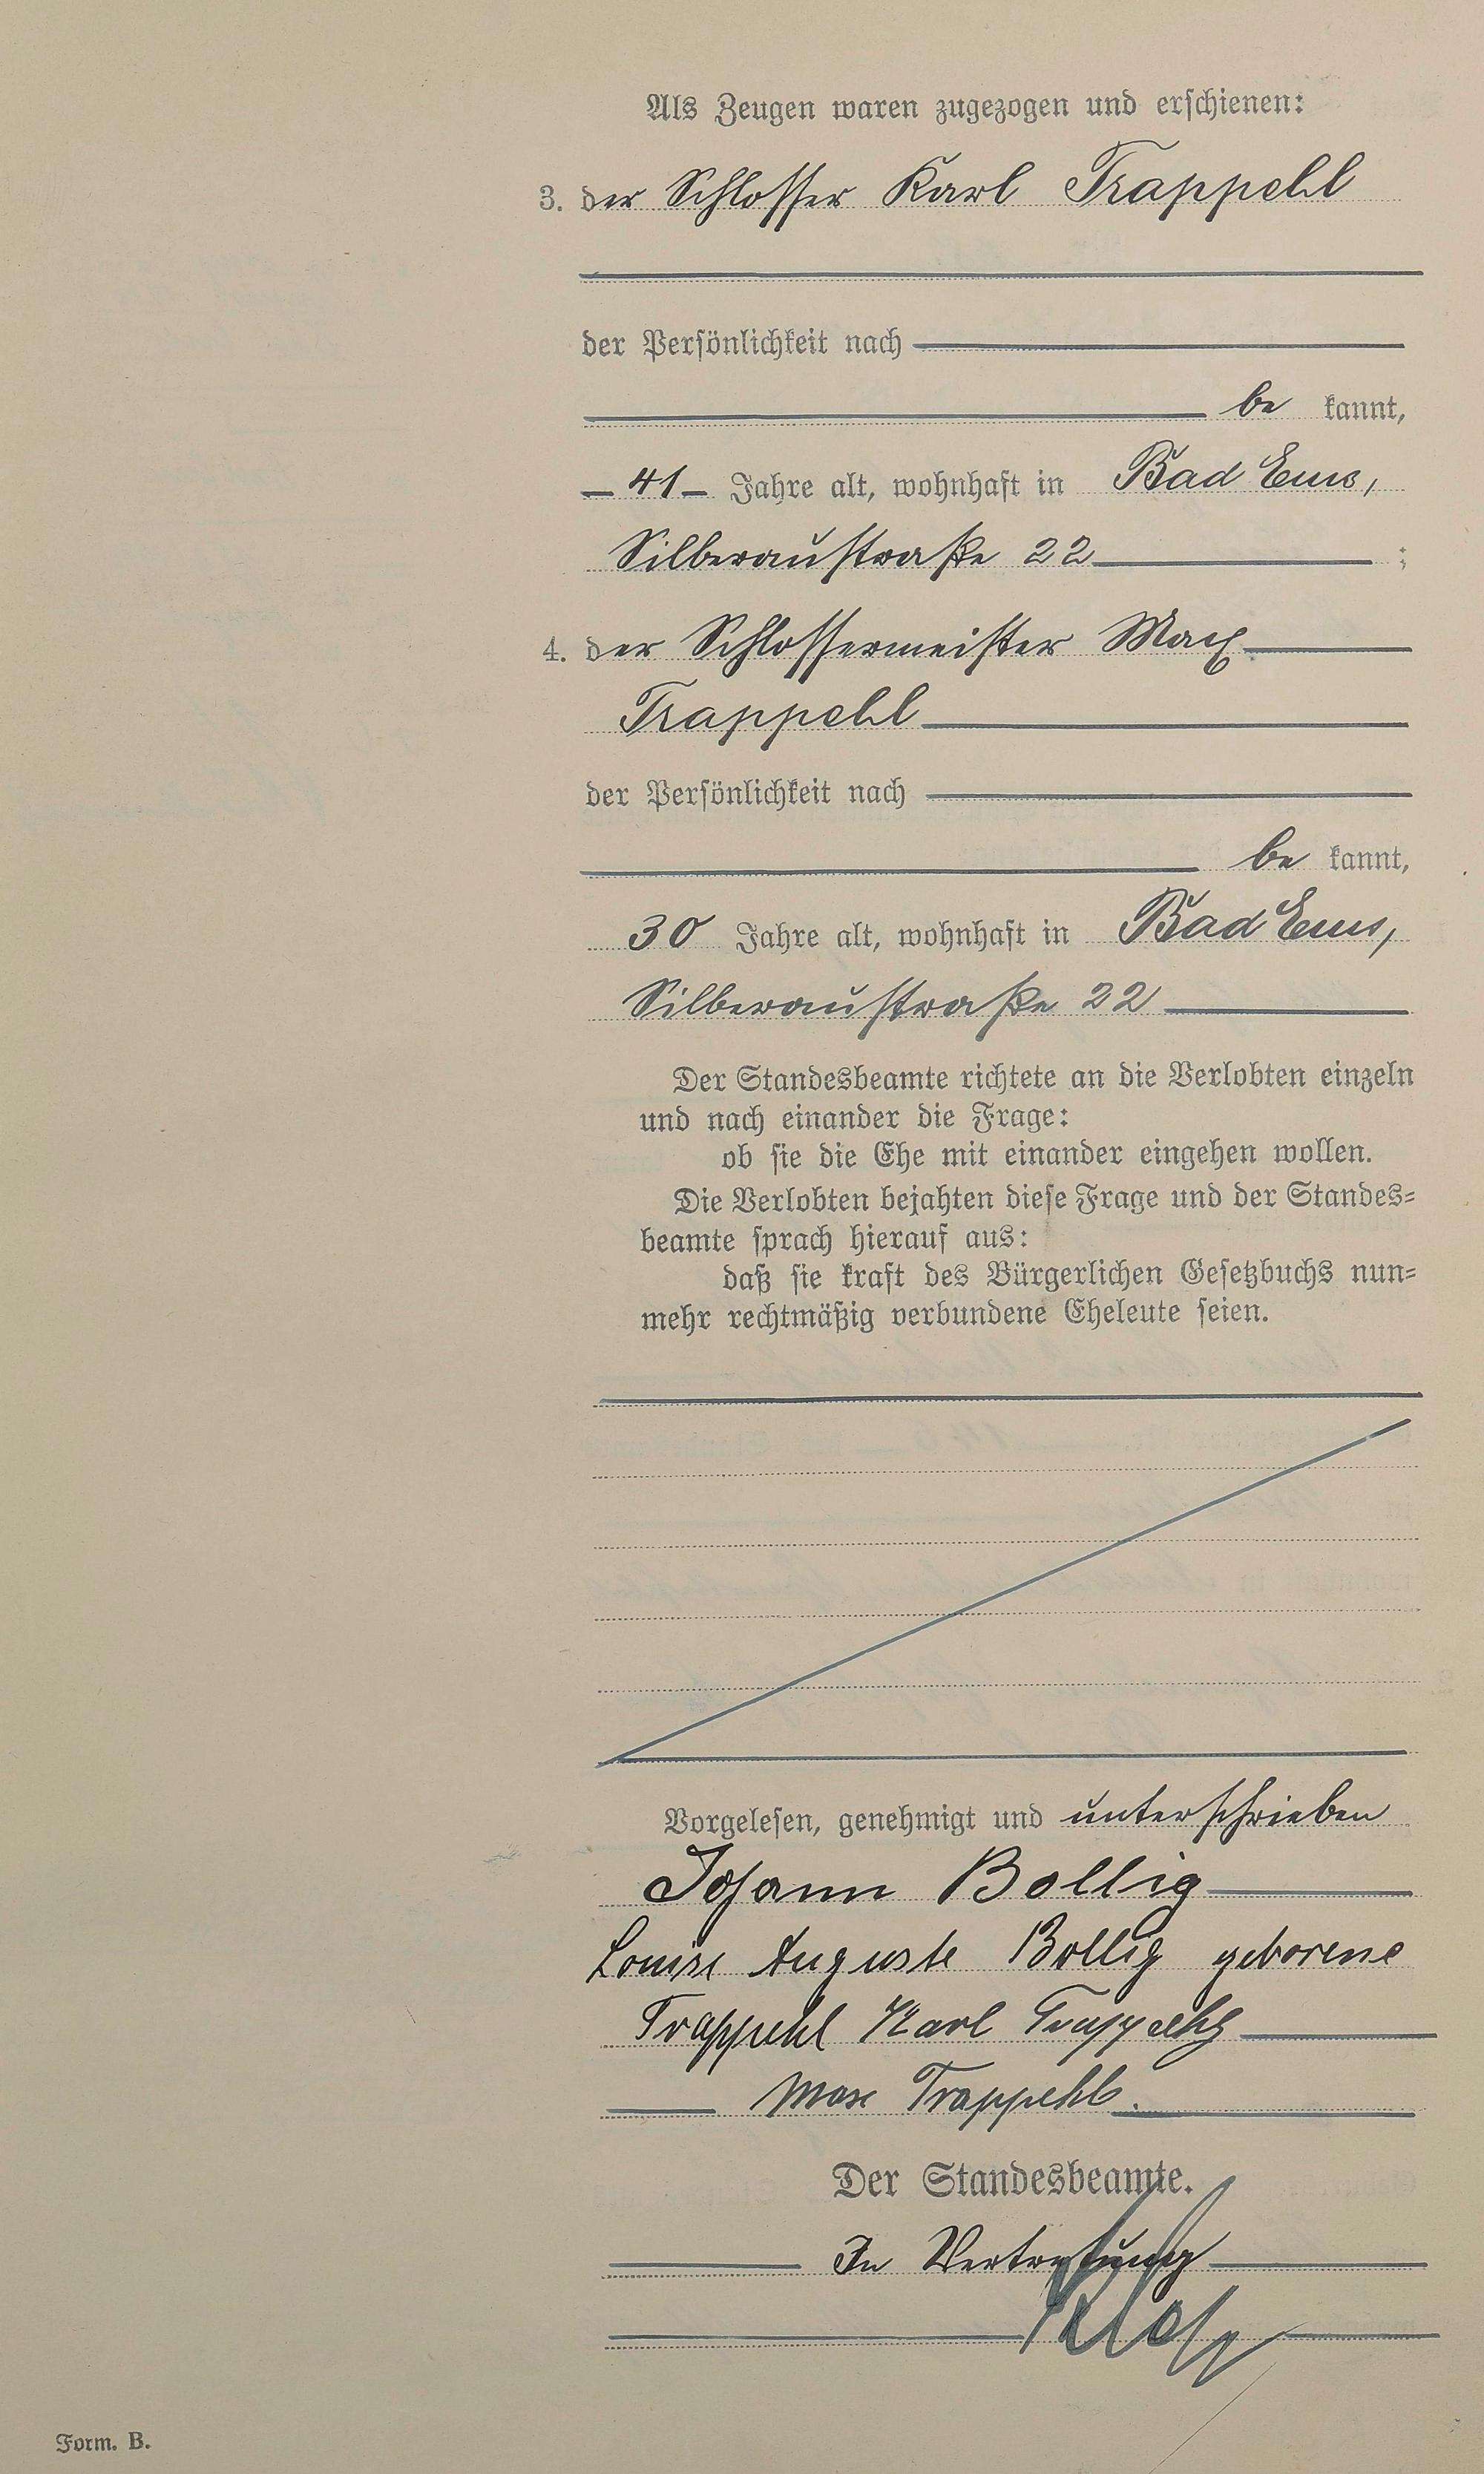 Als Zeugen waren zugezogen und erschienen:
3. der Schlosser Karl Trappehl
der Persönlichkeit nach
be kannt,
– 41 – Jahre alt, wohnhaft in Bad Ems,
Silberaustraße 22 ;
4. der Schlossermeister Max
Trappehl
der Persönlichkeit nach
be kannt,
30 Jahre alt, wohnhaft in Bad Ems,
Silberaustraße 22
Der Standesbeamte richtete an die Verlobten einzeln
und nach einander die Frage:
ob sie die Ehe mit einander eingehen wollen.
Die Verlobten bejahten diese Frage und der Standes=
beamte sprach hierauf aus:
daß sie kraft des Bürgerlichen Gesetzbuchs nun=
mehr rechtmäßig verbundene Eheleute seien.
Vorgelesen, genehmigt und unterschrieben
Johann Bollig
Louise Auguste Bollig geborene
Trappehl Karl Trappehl
Max Trappehl.
Der Standesbeamte.
In Vertretung
Form. B.